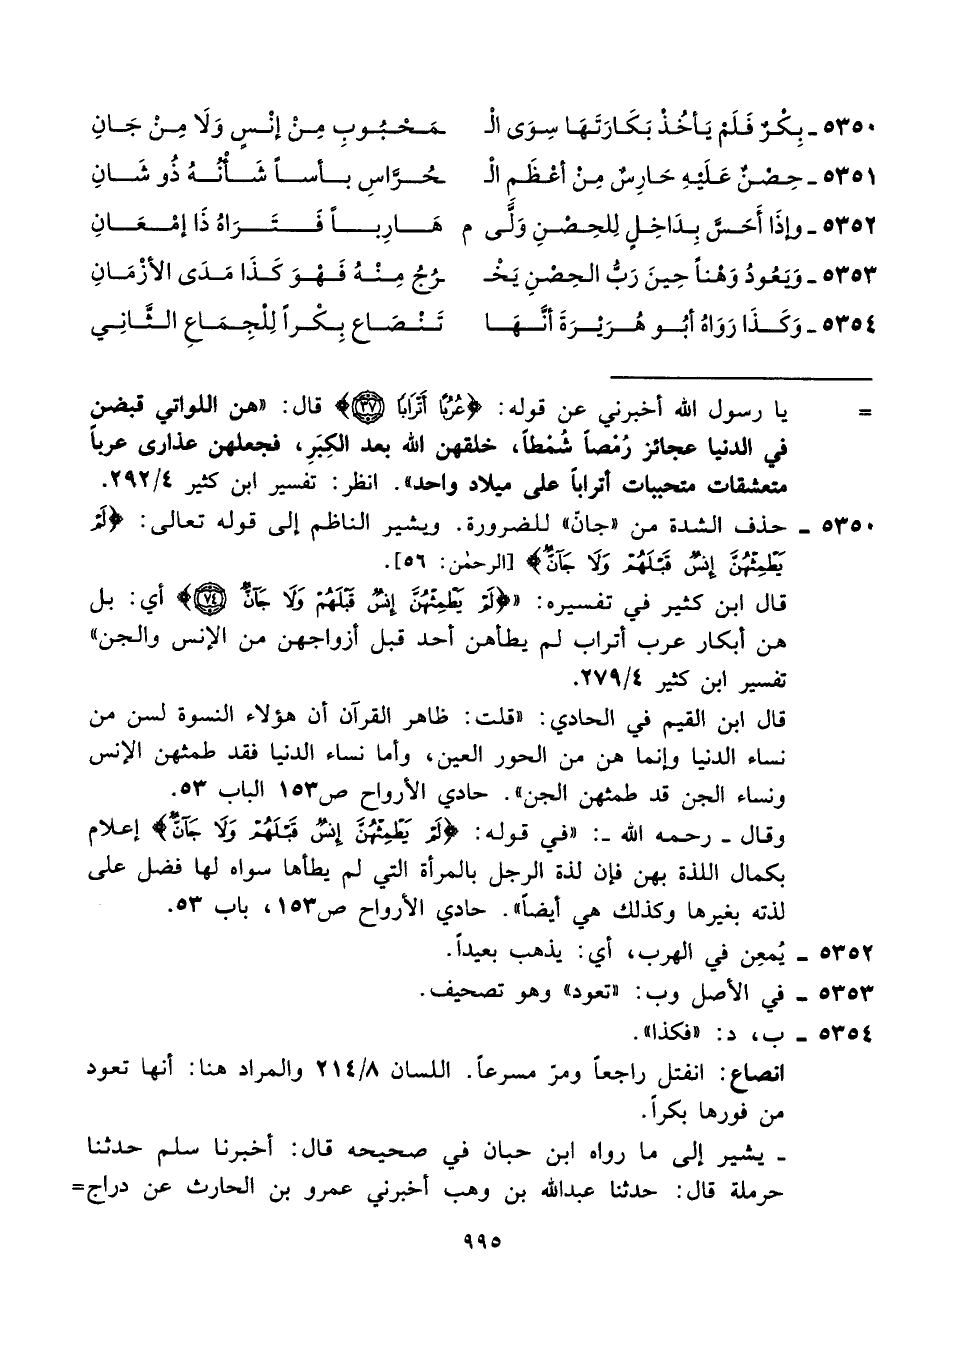 ٥٣٥٠ - بِكْرٌ فَلَمْ يَأخُذْ بَكَارَتَهَا سِوَى الْـ مَحْبُوبِ مِنْ إنْسٍ وَلَا مِنْ جَانِ
٥٣٥١ - حِصْنٌ عَلَيْهِ حَارِسٌ مِنْ أعْظَمِ الْـ حُرَّاسِ بأساً شَأْنُهُ ذُو شَانِ
٥٣٥٢ - وإذَا أَحَسَّ بِدَاخِلٍ لِلحِصْنِ وَلَّى م هَارِباً فَتَرَاهُ ذَا إمْعَانِ
٥٣٥٣ - وَيَعُودُ وَهْناً حِينَ رَبُّ الحِصْنِ يَخْـ رُجُ مِنْهُ فَهْوَ كَذَا مَدَى الأزْمَانِ
٥٣٥٤ - وَكَذَا رَوَاهُ أبُو هُرَيْرَةَ أنَّهَا تَنْصَاع بِكْراً لِلْجِمَاعِ الثَّانِي
= يا رسول الله أخبرني عن قوله: ﴿عُرُبًا أَتْرَابًا ٣٧﴾ قال: «هن اللواتي قبضن
في الدنيا عجائز رُمْصاً شُمْطاً، خلقهن الله بعد الكِبَرِ، فجعلهن عذارى عرباً
متعشقات متحببات أتراباً على ميلاد واحد». انظر: تفسير ابن كثير ٢٩٢/٤.
٥٣٥٠ - حذف الشدة من «جانّ» للضرورة. ويشير الناظم إلى قوله تعالى: ﴿لَمْ
يَطْمِثْهُنَّ إِنسٌ قَبْلَهُمْ وَلَا جَآنٌّ﴾ [الرحمٰن: ٥٦].
قال ابن كثير في تفسيره: «﴿لَمْ يَطْمِثْهُنَّ إِنسٌ قَبْلَهُمْ وَلَا جَآنٌّ ٧٤﴾ أي: بل
هن أبكار عرب أتراب لم يطأهن أحد قبل أزواجهن من الإنس والجن»
تفسير ابن كثير ٢٧٩/٤.
قال ابن القيم في الحادي: «قلت: ظاهر القرآن أن هؤلاء النسوة لسن من
نساء الدنيا وإنما هن من الحور العين، وأما نساء الدنيا فقد طمثهن الإنس
ونساء الجن قد طمثهن الجن». حادي الأرواح ص١٥٣ الباب ٥٣.
وقال - رحمه الله -: «في قوله: ﴿لَمْ يَطْمِثْهُنَّ إِنسٌ قَبْلَهُمْ وَلَا جَآنٌّ﴾ إعلام
بكمال اللذة بهن فإن لذة الرجل بالمرأة التي لم يطأها سواه لها فضل على
لذته بغيرها وكذلك هي أيضاً». حادي الأرواح ص١٥٣، باب ٥٣.
٥٣٥٢ - يُمعِن في الهرب، أي: يذهب بعيداً.
٥٣٥٣ - في الأصل وب: «تعود» وهو تصحيف.
٥٣٥٤ - ب، د: «فكذا».
انصاع: انفتل راجعاً ومرّ مسرعاً. اللسان ٢١٤/٨ والمراد هنا: أنها تعود
من فورها بكراً.
- يشير إلى ما رواه ابن حبان في صحيحه قال: أخبرنا سلم حدثنا
حرملة قال: حدثنا عبدالله بن وهب أخبرني عمرو بن الحارث عن دراج=
٩٩٥